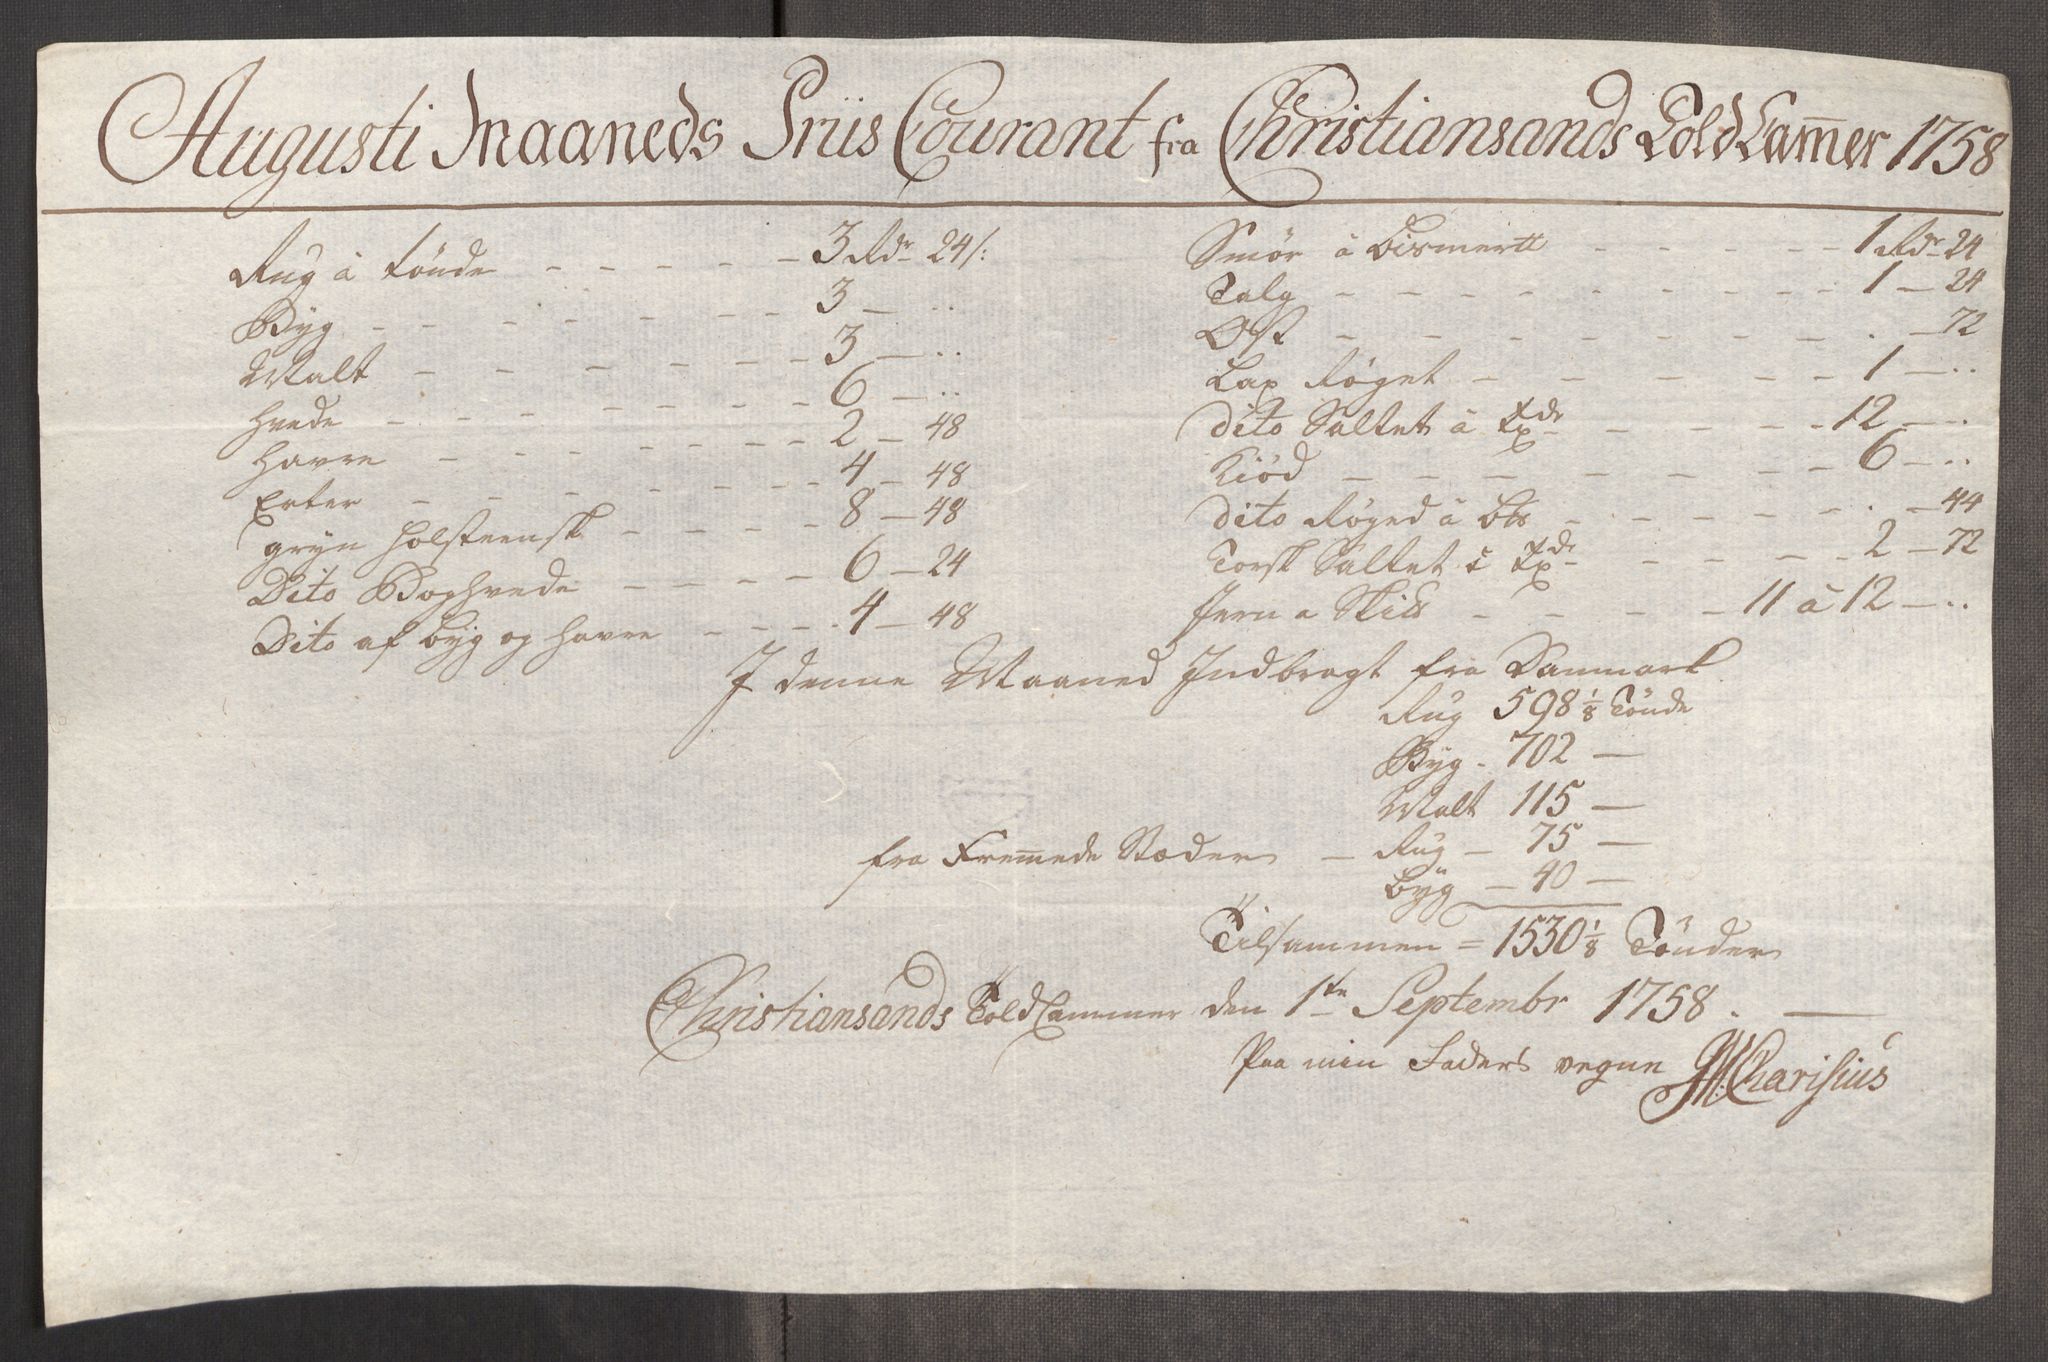 Augusti Maaneds Priis Courant fra Christiansands Told Cam̅er 1758
Rug â tönde - - - - - 3 Rdr 24 /:
Byg - - - - - - - - 3 — ..
Malt - - - - - - - 3 — ..
Hvede - - - - - - - - 6 — ..
Havre - - - - - - - 2 — 48
Erter - - - - - - - 4 — 48
gryn Holsteensk - - - - 8 — 48
Dito Boghvede - - - - 6 — 24
Dito af byg og Havre - - - - 4 — 48
Smör â Bismert - - - - - - 1 Rdr 24
Talg - - - - - - - - - - 1 — 24
Ost - - - - - - - - - . — 72
Lax Röget - - - - - - 1 — ..
dito Saltet â Tde - - - - - 12 — ..
Kiöd - - - - - - - - 6 — ..
dito Röged â - - - - - - . — 44
Torsk Saltet â Tde - - - - - 2 — 72
Jern a - - - - - 11 â 12 — ..
I denne Maaned Indbragt fra Danmark
Rug 598 1/8 Tönde
Byg . 702 —
Malt 115 —
fra Frem̅ede Stæder — Rug — 75 —
byg — 40 —
Tilsammen = 1530 1/8 Tönder
Christiansands Told Cammer den 1te Septembr 1758 . —
Paa min Faders vegne Charisius